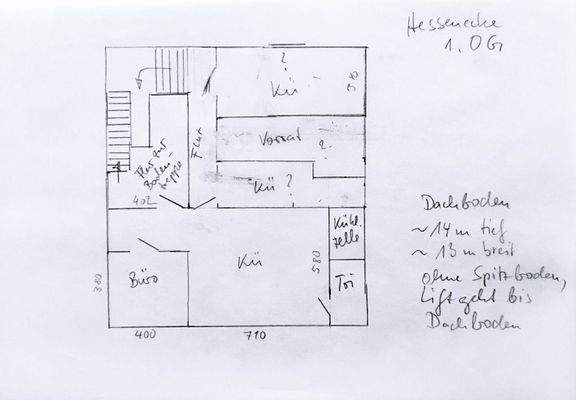 Hessenecke
1. OG
?
Kü
Vorrat
?
Flur
Flur zur
Boden-
treppe
Kü ?
402
Kühl-
zelle
Kü
580
Büro
380
Tri
400
710
Dachboden
~ 14 m tief
~ 13 m breit
ohne Spitzboden,
Lift geht bis
Dachboden